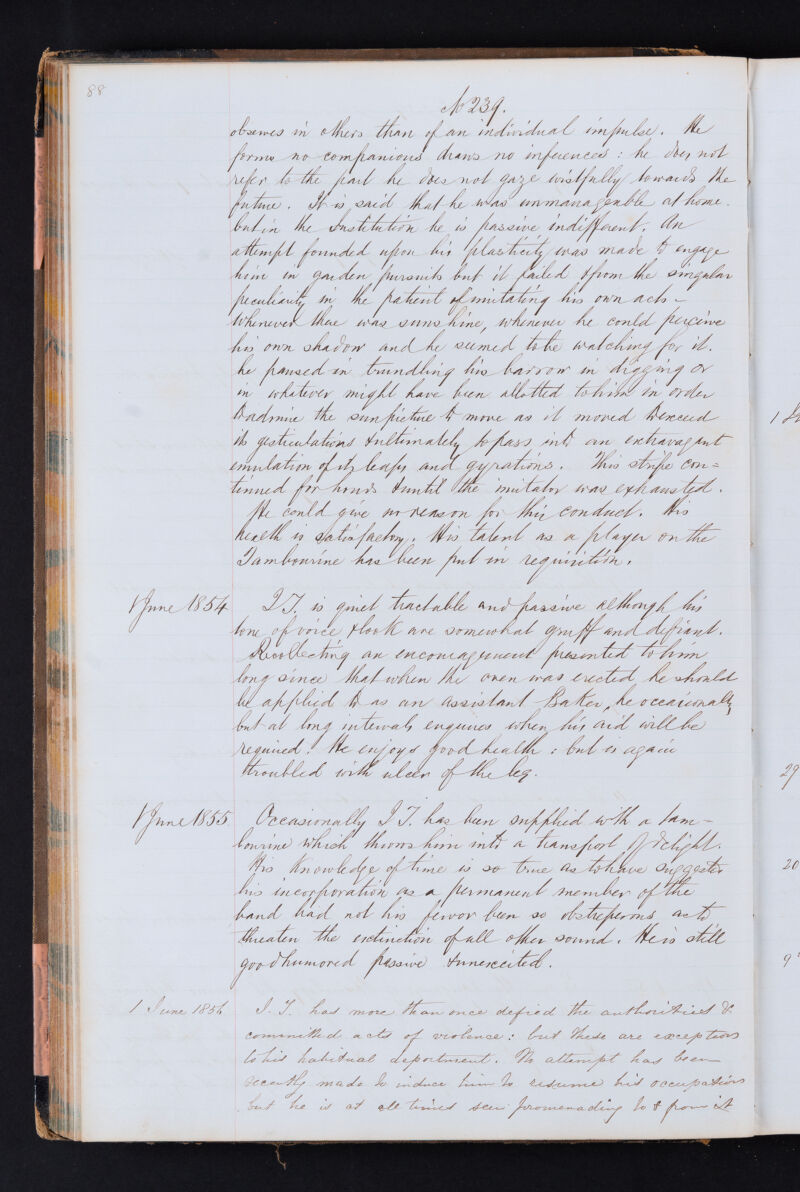 88
No 239.
observes in others than of an individual impulse. He
forms no companions draws no inferences: he does not
refer to the past he does not gaze wistfully towards the
future. It is said that he was unmanageable at home.
but in the Institution he is passive indifferent. An
attempt founded upon his plasticity was made to engage
him in garden pursuits but it failed from the singular
peculiarity in the patient of imitating his own acts -
Whenever there was sunshine, whenever he could perceive
his own shadow and he seemed to be watching for it.
he paused in trundling his barrow in digging or
in whatever might have been allotted to him in order
to admire the sunpicture to move as it moved to exceed
its gesticulations & ultimately to pass into an extravagant
emulation of its leaps and gyrations. This strife con=
tinued for hours & until the imitator was exhausted.
He could give no reason for this conduct. His
health is satisfactory. His talent as a player on the
Tambourine has been put in requisition.
1 June 1854 I T. is quiet tractable and passive although his
tone of voice & look are somewhat gruff and defiant.
Recollecting an encouragement presented to him
long since that when the oven was erected he should
be applied to as an assistant Baker, he occasionally
but at long intervals enquires when his aid will be
required. He enjoys good health: but is again
troubled with ulcer of the leg.
1 June 1855 Occasionally I T. has been supplied with a tam-
bourine which throws him into a transport of delight.
His knowledge of time is so true as to have suggested
his incorporation as a permanent member of the
band had not his fervor been so obstreperous as to
threaten the extinction of all other sound. He is still
good humored passive & unexcited.
1 June 1856 I. T. has more than once defied the authorities &
committed acts of violence: but these are exceptions
to his habitual deportment. No attempt has been
recently made to induce him to resume his occupation
but he is at all times seen promenading to & from it
1
29
20
9